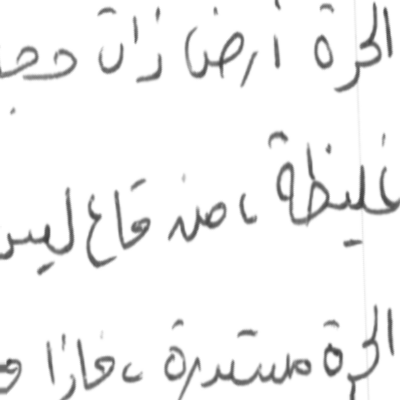 الحرة أرضا ذات حجا
غليظة، من قاع ليس
الحرة مستديرة، فإذا